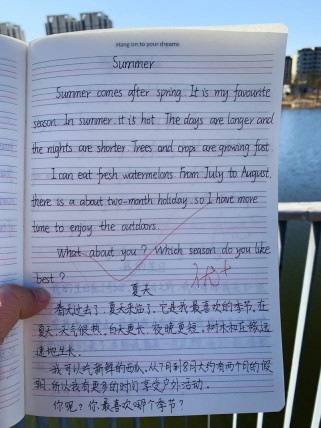 Hang on to your dreams
Summer
Summer comes after spring. It is my favourite
season. In summer, it is hot. The days are longer and
the nights are shorter. Trees and crops are growing fast
I can eat fresh watermelons. From July to August,
there is a about two-month holiday, so I have more
time to enjoy the outdoors.
What about you? Which season do you like
best?
优+
夏天
春天过去了，夏天来临了，它是我最喜欢的季节。在
夏天，天气很热，白天更长，夜晚更短，树木和庄稼迅
速地生长。
我可以吃新鲜的西瓜，从7月到8月大约有两个月的假
期，所以我有更多的时间享受户外活动。
你呢？你最喜欢哪个季节？